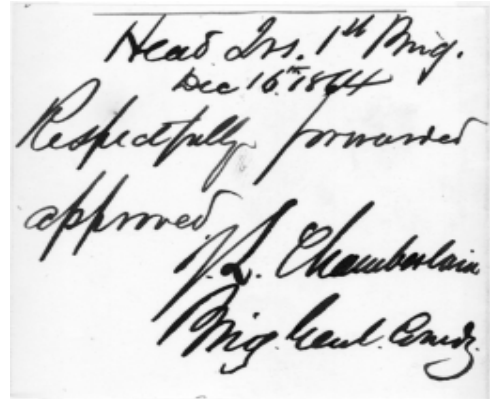 Head Qrs. 1st Brig.
Dec 16th 1864
Respectfully forwarded
approved.
J. L. Chamberlain
Brig. Genl. Comdg.